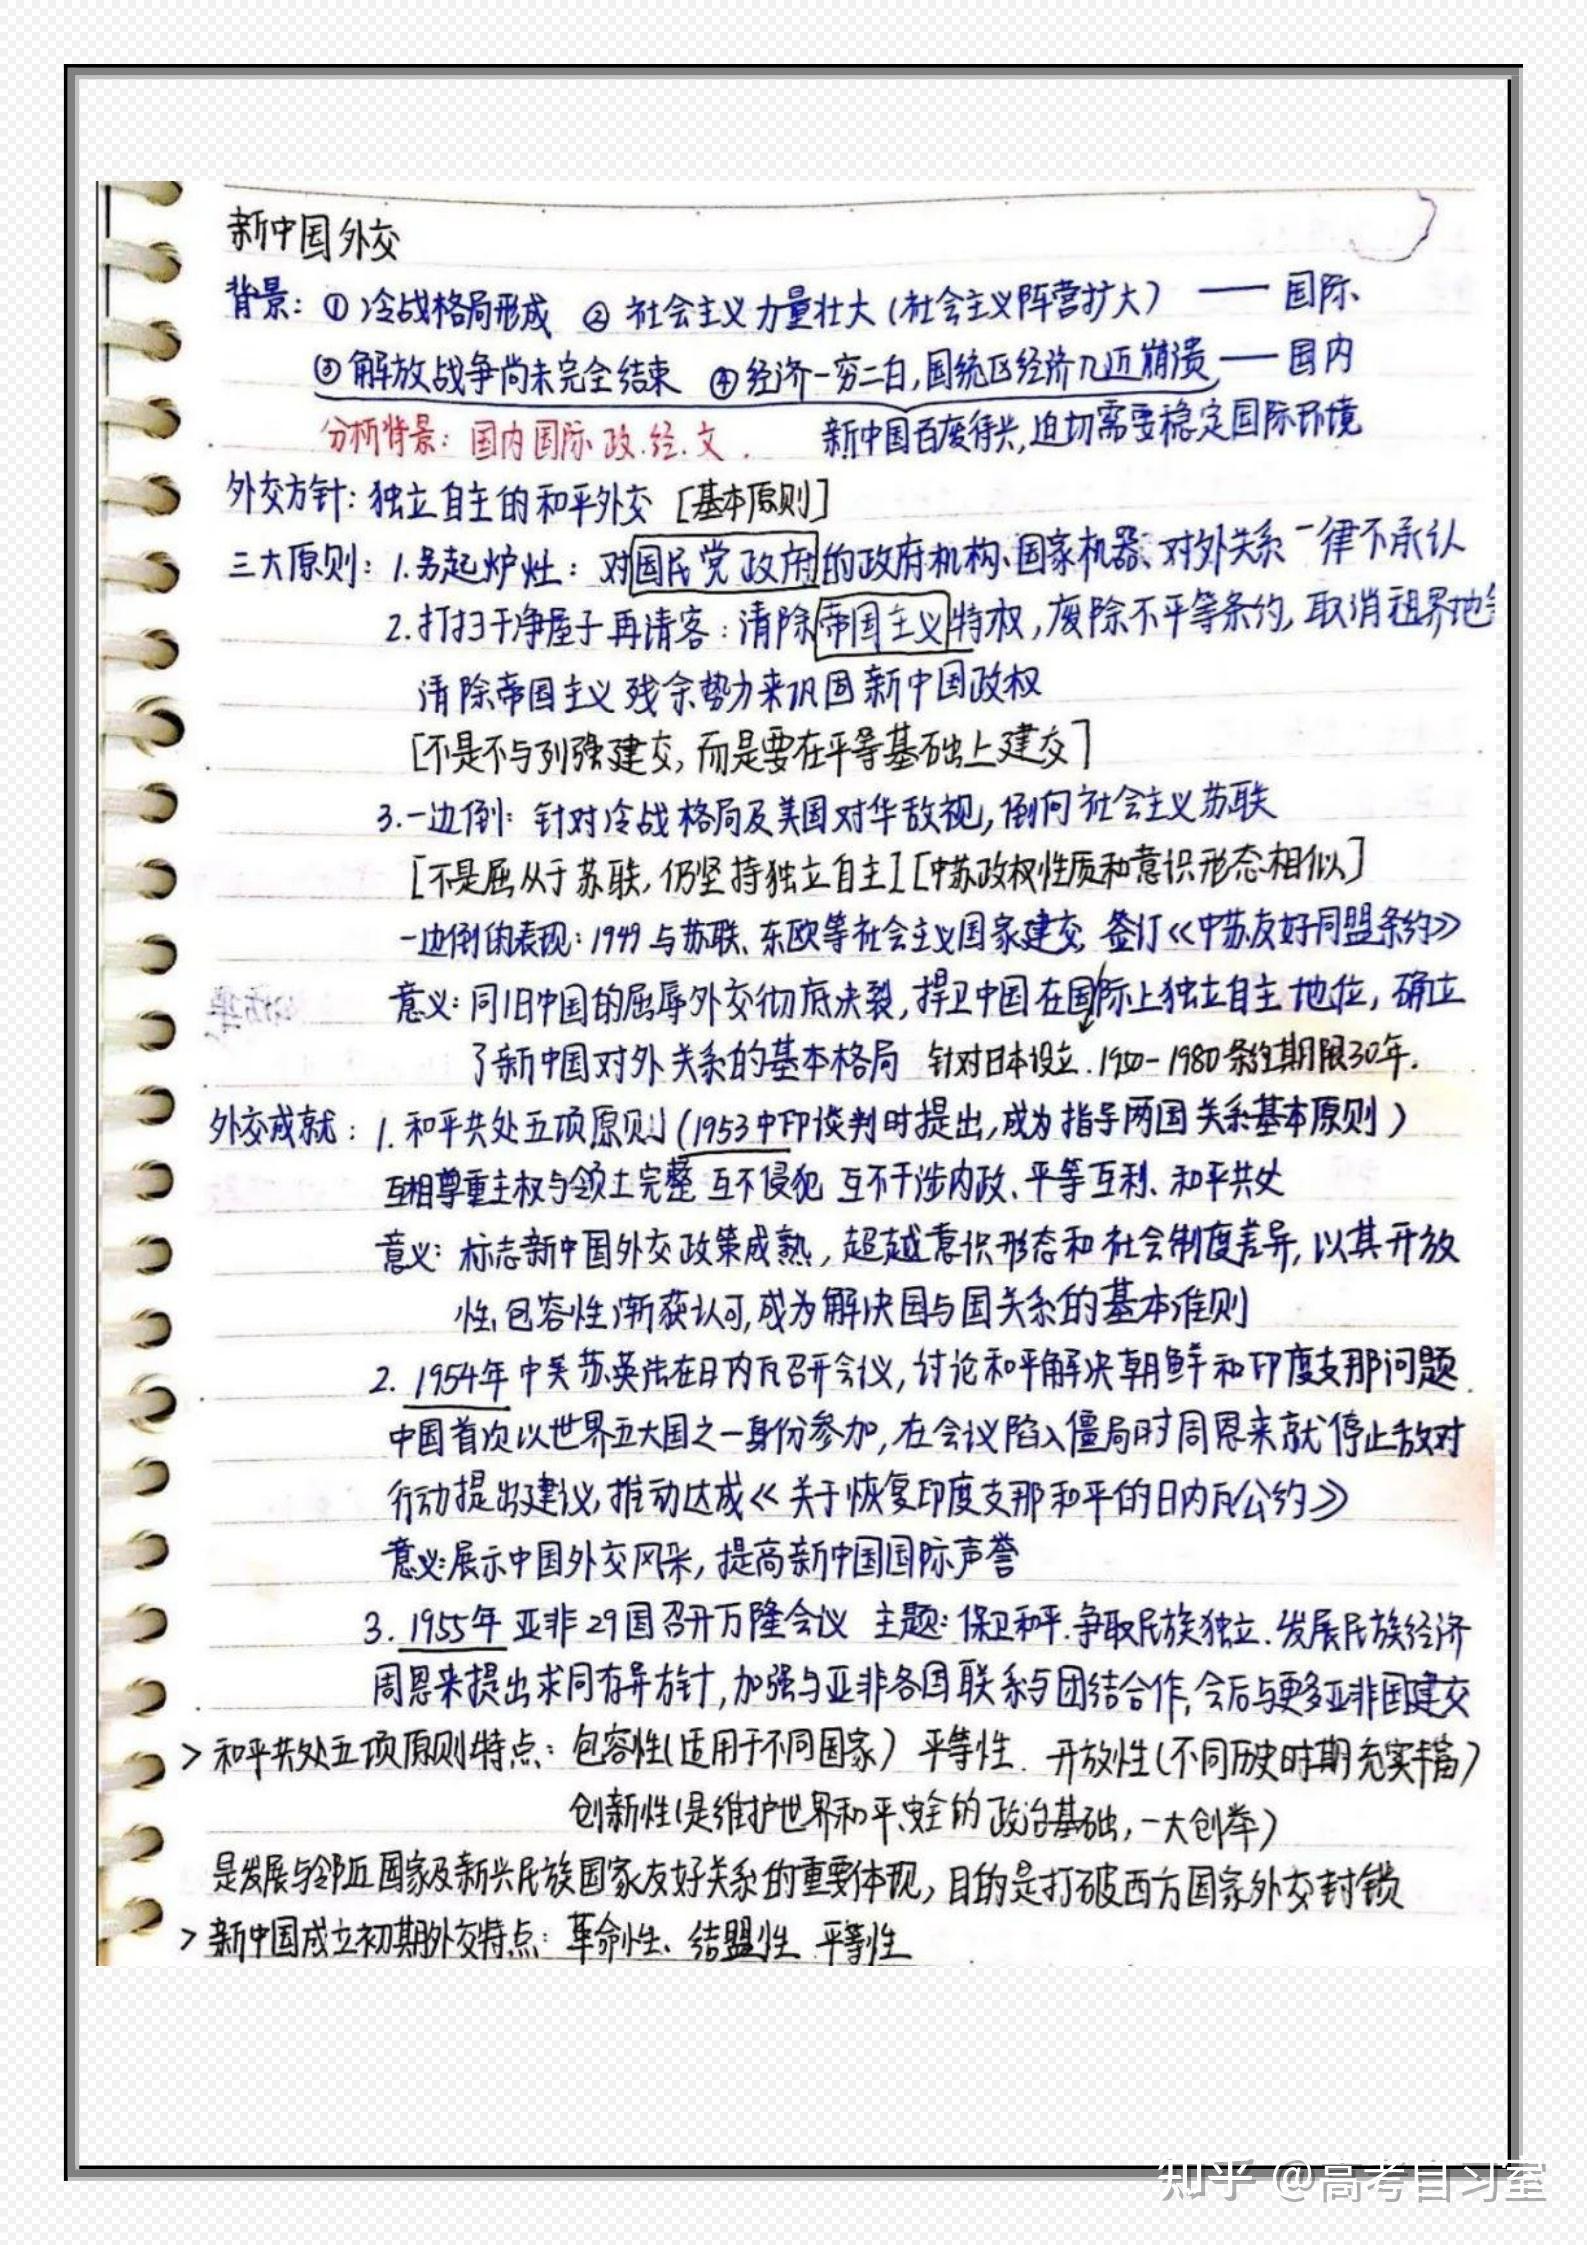 新中国外交
背景：① 冷战格局形成 ② 社会主义力量壮大（社会主义阵营扩大） —— 国际
③ 解放战争尚未完全结束 ④ 经济一穷二白，国统区经济几近崩溃 —— 国内
分析背景：国内国际 政.经.文. 新中国百废待兴，迫切需要稳定国际环境
外交方针：独立自主的和平外交 [基本原则]
三大原则：1.另起炉灶：对国民党政府的政府机构、国家机器、对外关系一律不承认
2.打扫干净屋子再请客：清除帝国主义特权，废除不平等条约，取消租界地等
清除帝国主义残余势力来巩固新中国政权
[不是不与列强建交，而是要在平等基础上建交]
3.一边倒：针对冷战格局及美国对华敌视，倒向社会主义苏联
[不是屈从于苏联，仍坚持独立自主][中苏政权性质和意识形态相似]
一边倒的表现：1949与苏联、东欧等社会主义国家建交 签订《中苏友好同盟条约》
意义：同旧中国的屈辱外交彻底决裂，捍卫中国在国际上独立自主地位，确立
了新中国对外关系的基本格局 针对日本设立.1950-1980条约期限30年.
外交成就：1.和平共处五项原则（1953中印谈判时提出，成为指导两国关系基本原则）
互相尊重主权与领土完整 互不侵犯 互不干涉内政、平等互利、和平共处
意义：标志新中国外交政策成熟，超越意识形态和社会制度差异，以其开放
性、包容性渐获认可，成为解决国与国关系的基本准则
2. 1954年 中美苏英法在日内瓦召开会议，讨论和平解决朝鲜和印度支那问题.
中国首次以世界五大国之一身份参加，在会议陷入僵局时周恩来就停止敌对
行动提出建议，推动达成《关于恢复印度支那和平的日内瓦公约》
意义：展示中国外交风采，提高新中国国际声誉
3. 1955年 亚非29国召开万隆会议 主题：保卫和平.争取民族独立.发展民族经济
周恩来提出求同存异方针，加强与亚非各国联系与团结合作，会后与更多亚非国建交
> 和平共处五项原则特点：包容性（适用于不同国家） 平等性. 开放性（不同历史时期充实丰富）
创新性（是维护世界和平、安全的政治基础，一大创举）
是发展与邻近国家及新兴民族国家友好关系的重要体现，目的是打破西方国家外交封锁
> 新中国成立初期外交特点：革命性、结盟性 平等性
知乎 @高考自习室